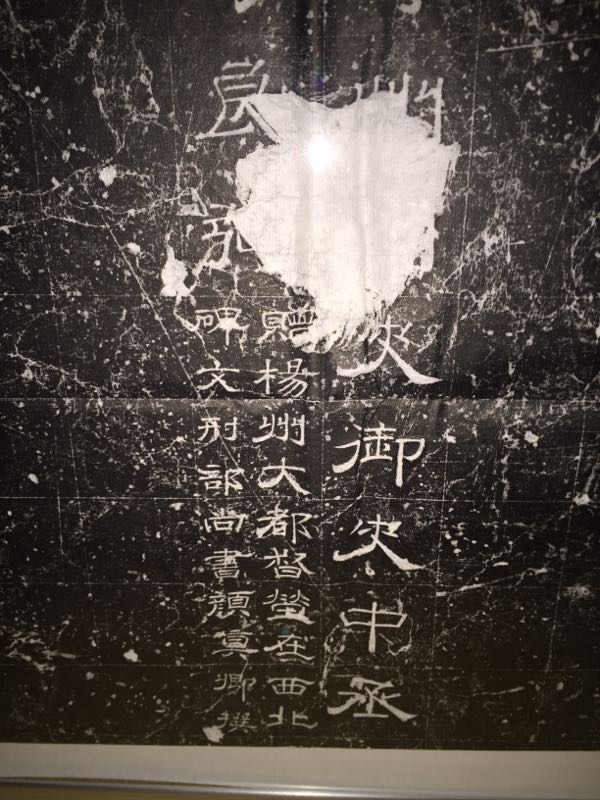 州史御史中丞
贈楊州大都督塋在西北
碑文刑部尚書顏真卿撰